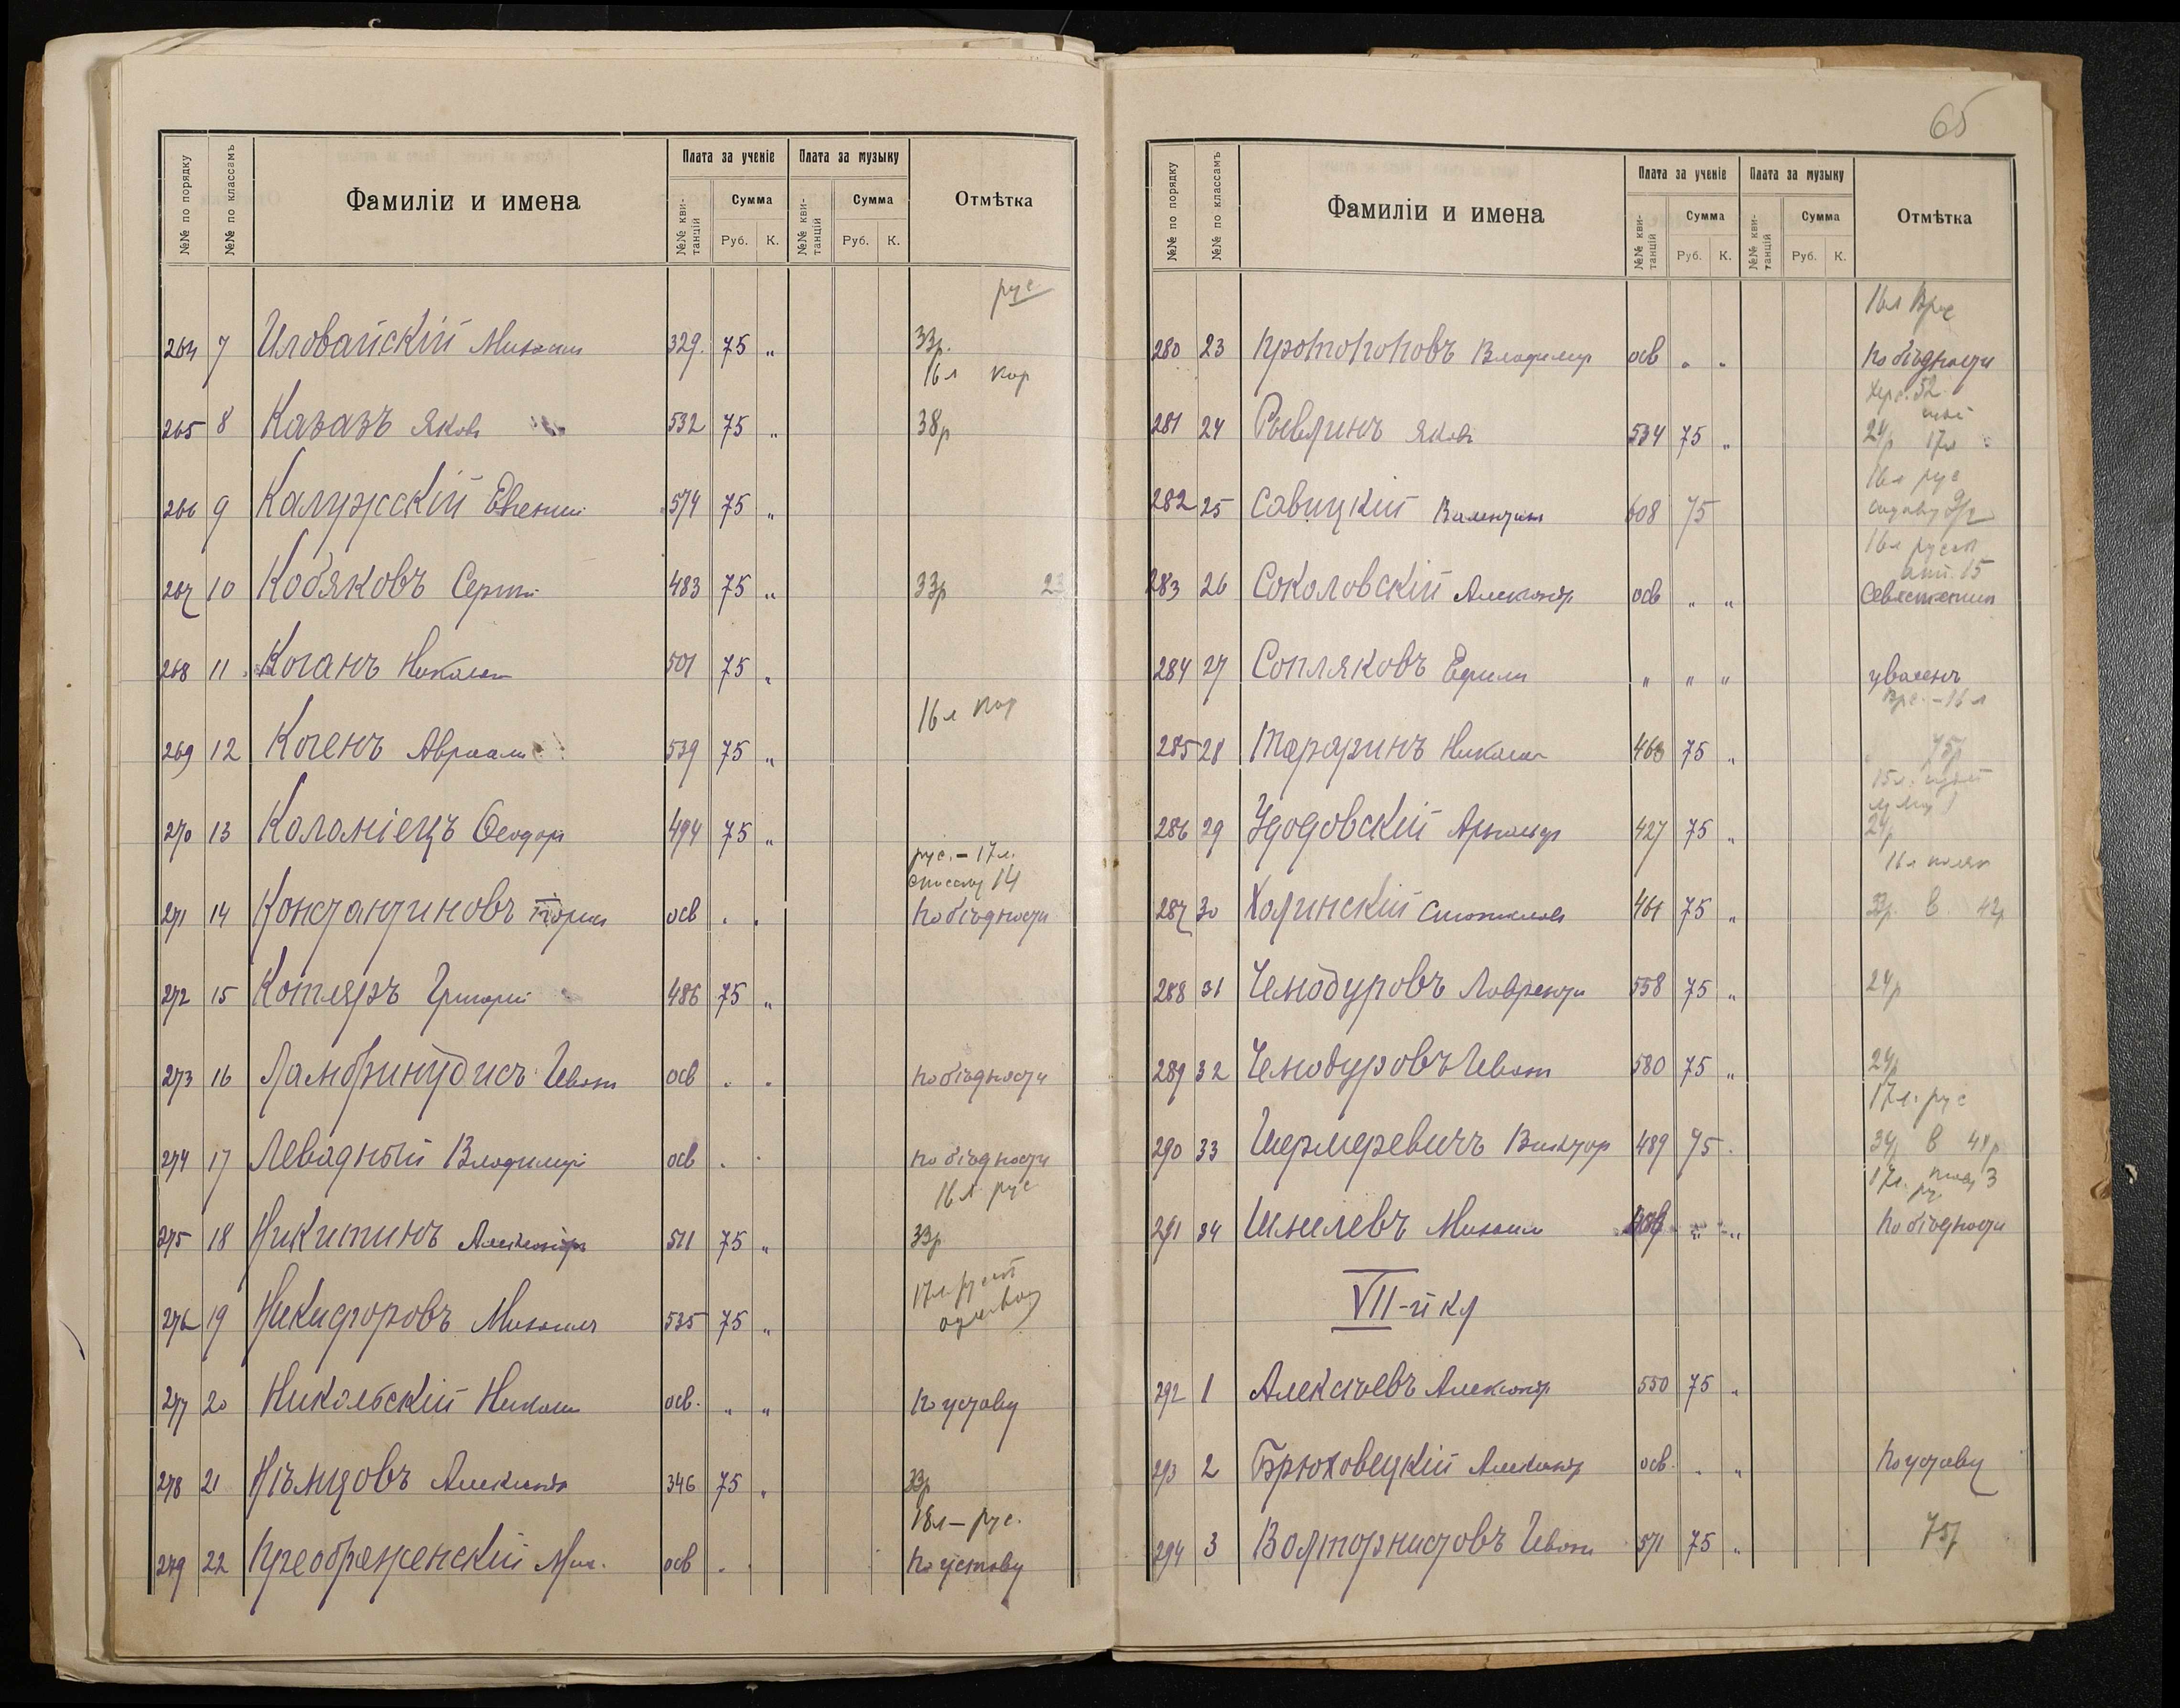 65
№№ по порядку №№ по классамъ Фамиліи и имена Плата за ученіе Плата за музыку Отмѣтка
№№ кви-танцій Сумма №№ кви-танцій Сумма
Руб. К. Руб. К.
рус
264 7 Иловайскій Михаил 329. 75 „ 33р.
16 л кар
265 8 Казазъ Яковъ 532 75 „ 38р
266 9 Калужскій Евгеній 574 75 „
267 10 Кобяковъ Сергѣй 483 75 „ 33р 23
268 11 Коганъ Николай 501 75 „
16 л кар
269 12 Когенъ Авраам 539 75 „
270 13 Коломіецъ Ѳеодоръ 494 75 „
рус. – 17 л.
14
271 14 Константиновъ осв „ „ По бѣдности
272 15 Котляръ Григорій 486 75 „
273 16 Ламбринудисъ Иванъ осв „ „ по бѣдности
274 17 Левадный Владимиръ осв „ „ по бѣдности
16 л. рус
275 18 Никитинъ Александръ 511 75 „ 33р
17 л.
276 19 Никифоровъ Михаилъ 535 75 „
277 20 Никольскій Николай осв. „ „ По уставу
278 21 Нѣмцовъ Александръ 346 75 „ 33р
18 л – рус.
279 22 Преображенскій Мих. осв „ „ По уставу
№№ по порядку №№ по классамъ Фамиліи и имена Плата за ученіе Плата за музыку Отмѣтка
№№ кви-танцій Сумма №№ кви-танцій Сумма
Руб. К. Руб. К.
16 л
280 23 Протопоповъ Владимир осв „ „ По бѣдности
281 24 Рывлинъ Яковъ 534 75 „ 24р 17 л
16 л рус
282 25 Савицкій Валентинъ 608 75
16 л
15
283 26 Соколовскій Александръ осв „ „
284 27 Сопляковъ Ефимъ „ „ „ уволенъ
– 16 л
285 28 Тараринъ Николай 463 75 „ 75р
15 л.
286 29 Удодовскій Арнольдъ 427 75 „ 24р
16 л поляк
287 30 Халинскій Станиславъ 461 75 „ 33р. в 42р
288 31 Чемодуровъ Лаврентій 558 75 „ 24р
289 32 Чемодуровъ Иванъ 580 75 „ 24р
17 л. рус
290 33 Шермеревичъ Викторъ 489 75 „ в 41р
17 л. 3
рус
291 34 Шмилевъ Михаил осв „ „ По бѣдности
VII-й кл
292 1 Алексѣевъ Александръ 550 75 „
293 2 Брюховецкій Александръ осв. „ „ По уставу
294 3 Валторнистовъ Иванъ 571 75 „ 75р